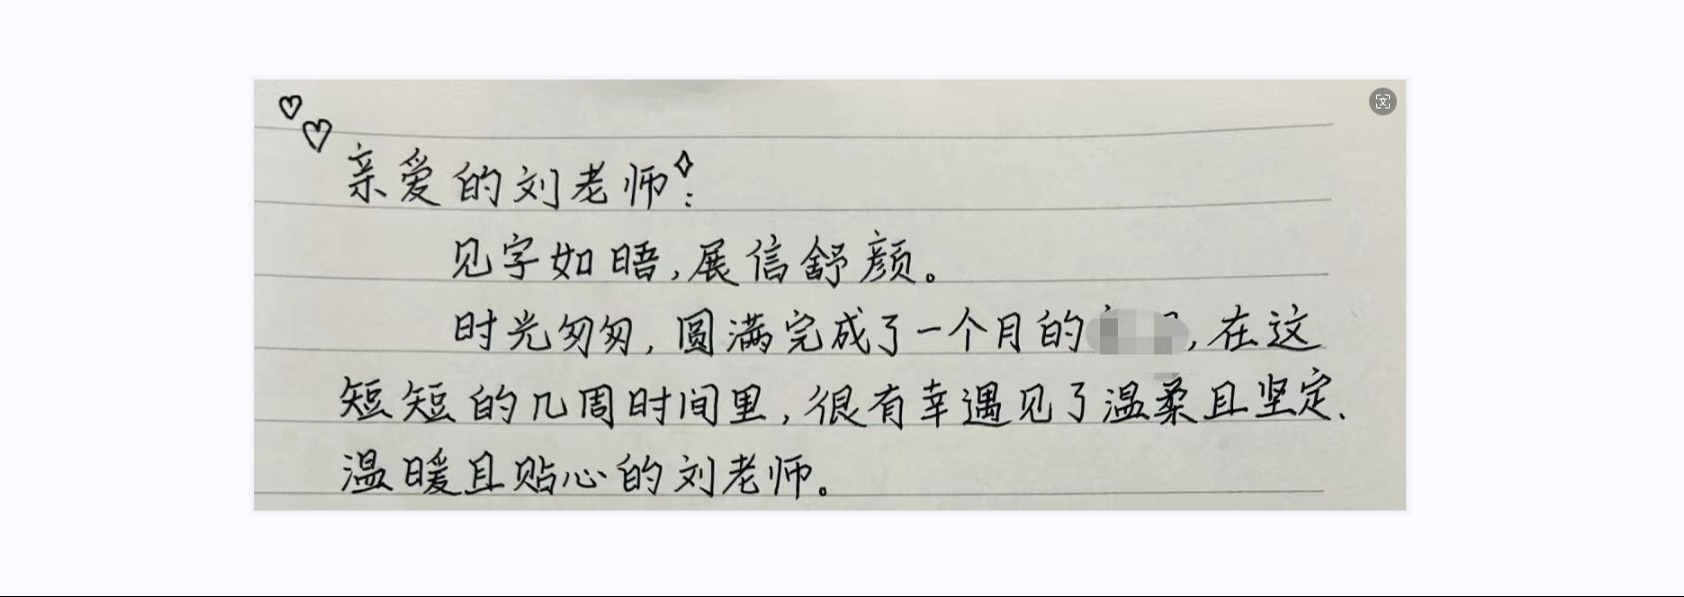 亲爱的刘老师：
见字如晤，展信舒颜。
时光匆匆，圆满完成了一个月的，在这
短短的几周时间里，很有幸遇见了温柔且坚定、
温暖且贴心的刘老师。